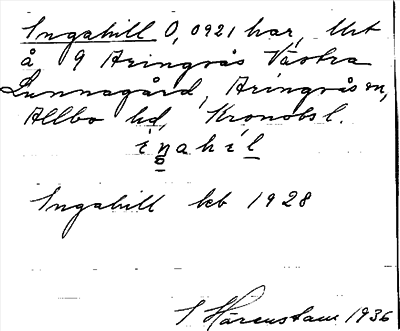 Ingahill 0,0921 har, Urt
å 9 Aringsås Västra
Lunnagård, Aringsås sn,
Allbo hd, Kronobs l.
iŋahil
Ingahill kb 1928
S Härenstam 1936